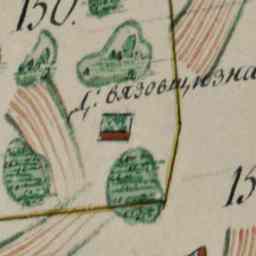 150.
Д: вязовщизна
15